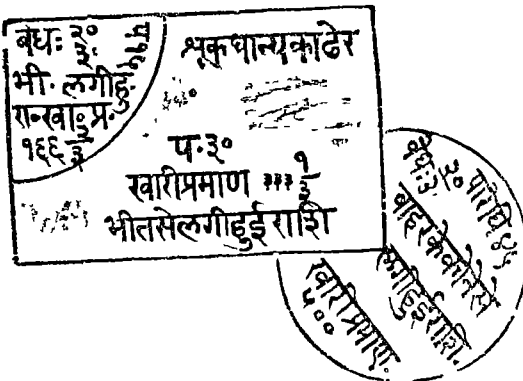 बधः २०
३
भी. लगीहु.
रा॰खा॰प्र॰
१६६ २/३
शूकधान्यकाढेर
प॰३०
खारीप्रमाण ३३३ १/३
भीतसेलगीहुईराशि
परिधि ४५
बेधः३ २०
बाहरकेकोनेसे
लगीहुईराशि.
खारीप्रमाण.
५००